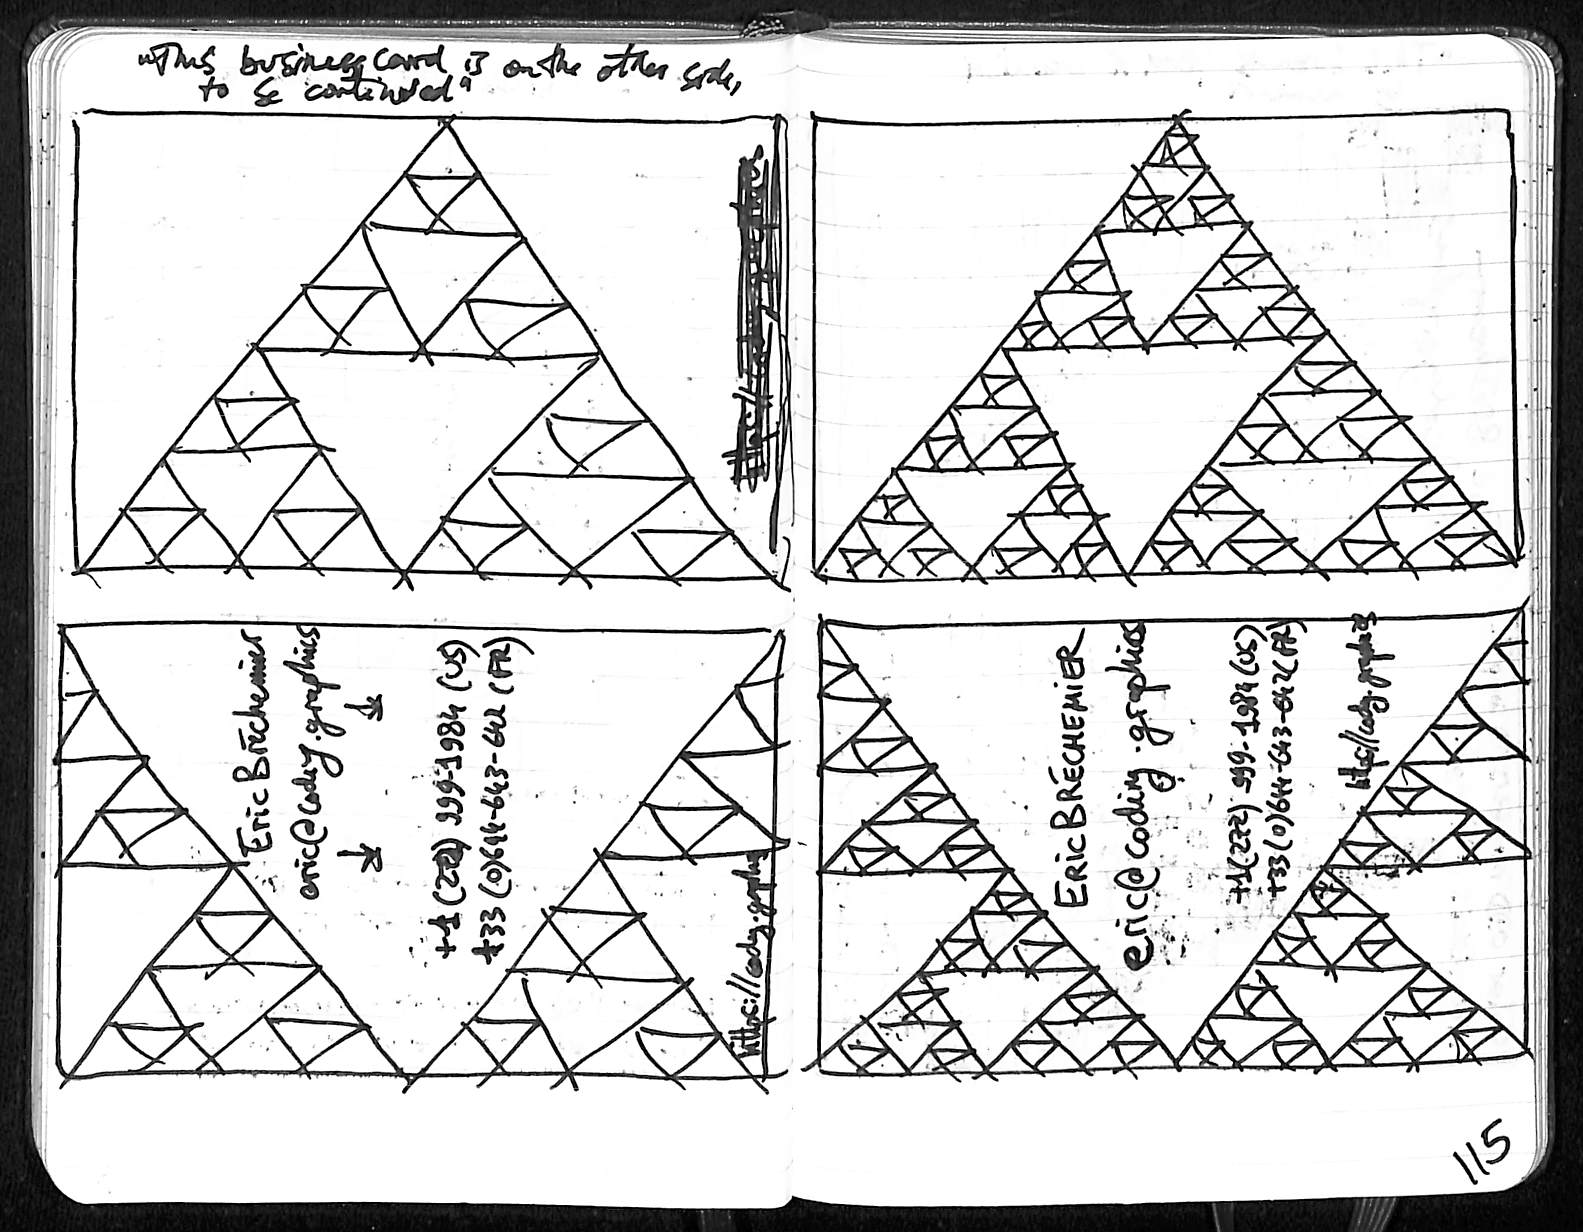 "This business card is on the other side,
to be continued"
Eric Bréchemier
eric@coding.graphics
+1 (272) 999-1984 (US)
+33 (0)644-643-642 (FR)
ERIC BRÉCHEMIER
eric@coding.graphics
+1 (272) -999-1984 (US)
+33 (0)644-643-642 (FR)
115